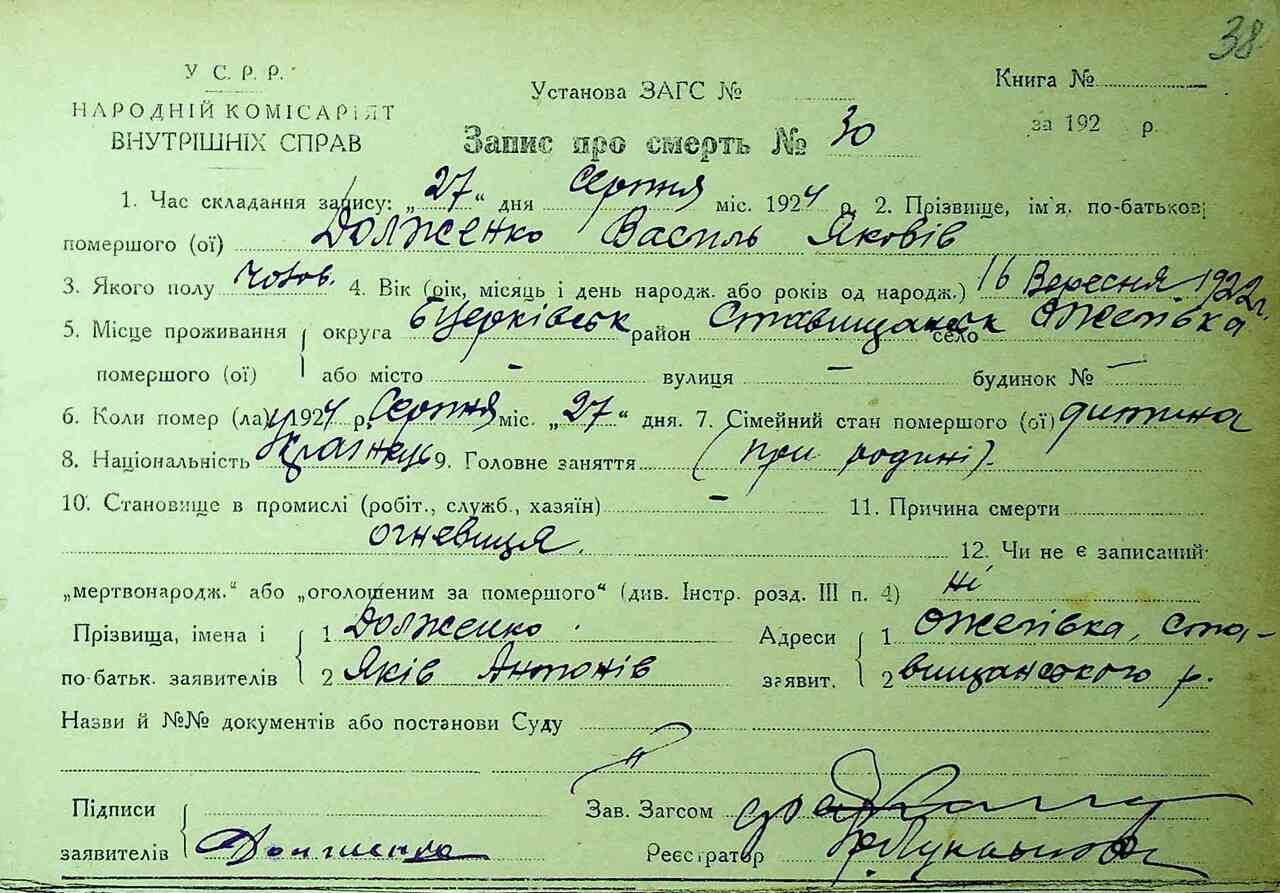 38
У С. Р. Р.
НАРОДНІЙ КОМІСАРІЯТ
ВНУТРІШНІХ СПРАВ
Установа ЗАГС №
Книга №
за 192 р.
Запис про смерть № 30
1. Час складання запису: „27" дня Серпня міс. 1924 р. 2. Прізвище, ім'я, по-батькові
помершого (ої) Долженко Василь Яковів
3. Якого полу чолов. 4. Вік (рік, місяць і день народж. або років од народж.) 16 Вересня 1922 г.
5. Місце проживання округа БЦерківськ район Ставищанськ село Ожегівка
помершого (ої) або місто - вулиця - будинок № -
6. Коли помер (ла) 1924 р. Серпня міс. „27" дня. 7. Сімейний стан помершого (ої) дитина
8. Національність Українець 9. Головне заняття (при родині).
10. Становище в промислі (робіт., служб., хазяїн) - 11. Причина смерти
огневиця. 12. Чи не є записаний
„мертвонародж." або „оголошеним за помершого" (див. Інстр. розд. III п. 4) ні
Прізвища, імена і 1 Долженко Адреси 1 Ожегівка, Ста-
по-батьк. заявителів 2 Яків Антонів заявит. 2 вищанського р.
Назви й №№ документів або постанови Суду
Підписи Зав. Загсом
заявителів Реєстратор